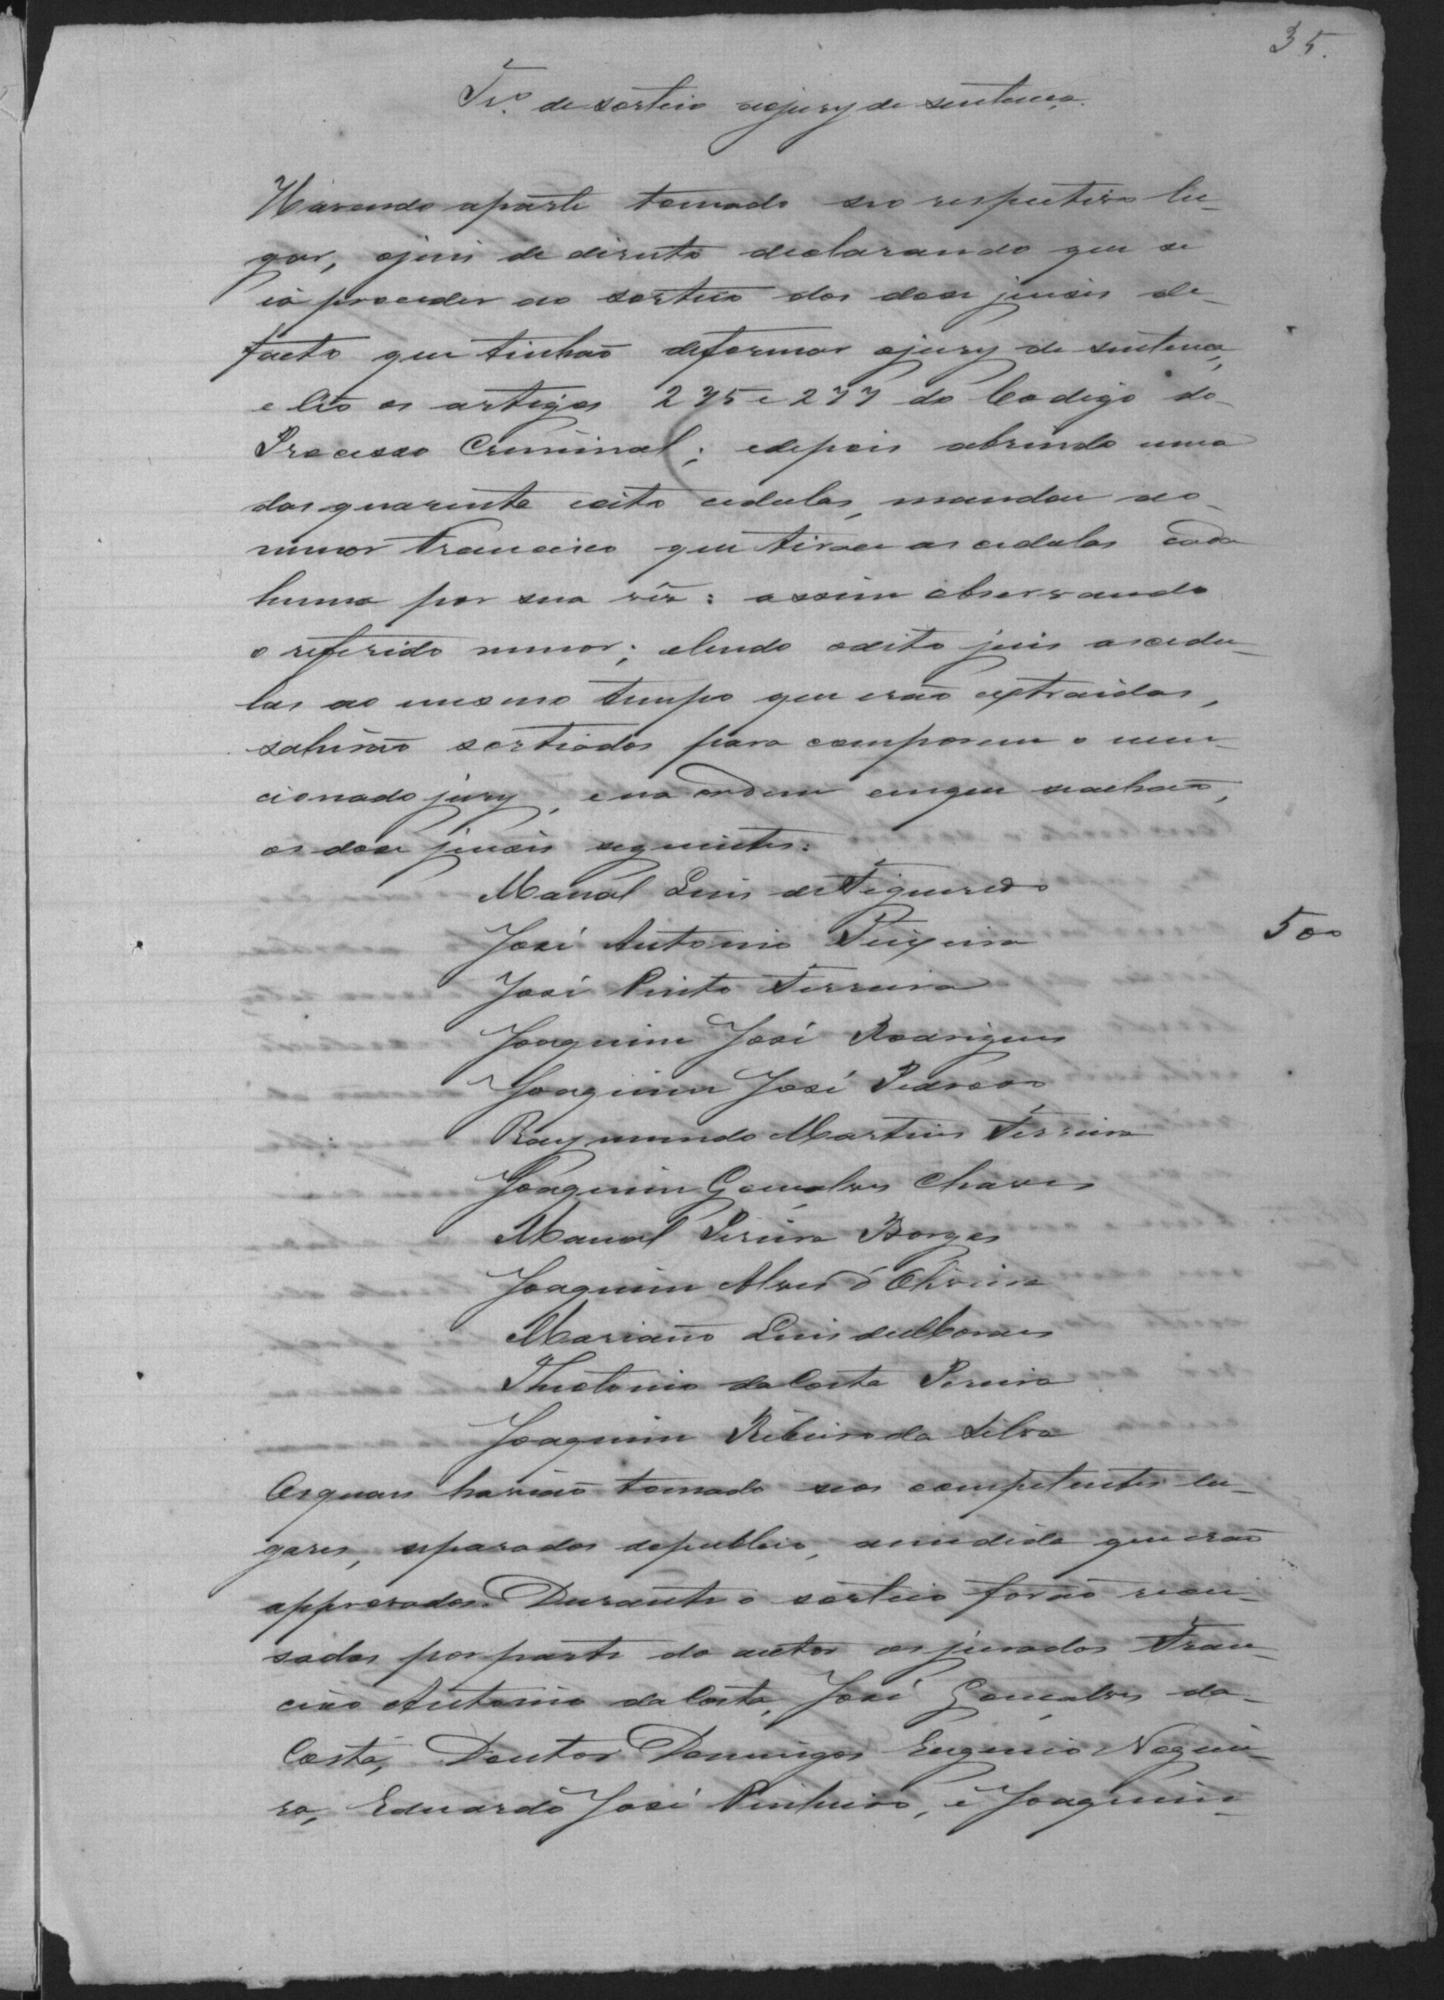 35.
Tr.º de sorteio do jury de sentença.
Havendo aparte tomado seo respectivo lu-
gar, ojuis de direito declarando que se
ia proceder ao sorteio dos dose juises de-
facto que tinhaõ deformar ojury de sentença,
e lêo os artigos 275 e 277 do Codigo do-
Processo Criminal; edepois abrindo urna
das quarenta eoito cedulas, mandou ao-
menor Francisco que tirace as cedulas cada
huma por sua vês: assim observando
o referido menor; elendo odito juis ascedu-
las ao mesmo tempo que eraõ extraidas,
sahiraõ sortiados para comporem o men-
cionado jury, ena ordem emque seachaõ,
os dose juises seguintes:
Manoel Luis de Figueredo
José Antonio Teixeira
500
José Pinto Ferreira
Joaquim José Rodrigues
Joaquim José Pedroso
Raymundo Martins Ferreira
Joaquim Gonçalves Chaves
Manoel Pereira Borges
Joaquim Alves d'Oliveira
Mariano Luis de Moraes
Theotonio da Costa Pereira
Joaquim Ribeiro da Silva
Osquaes haviaõ tomado seos competentes lu-
gares, separados dopublico, amedida que eraõ
approvados. Durante o sorteio foraõ recu-
sados por parte do autor os jurados Fran-
cisco Antonio da Costa, José Gonçalves da-
Costa, Doutor Domingos Eugenio Noguei-
ra, Eduardo José Pinheiro, e Joaquim-